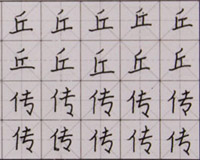 丘丘丘丘丘
丘丘丘丘丘
传传传传传
传传传传传